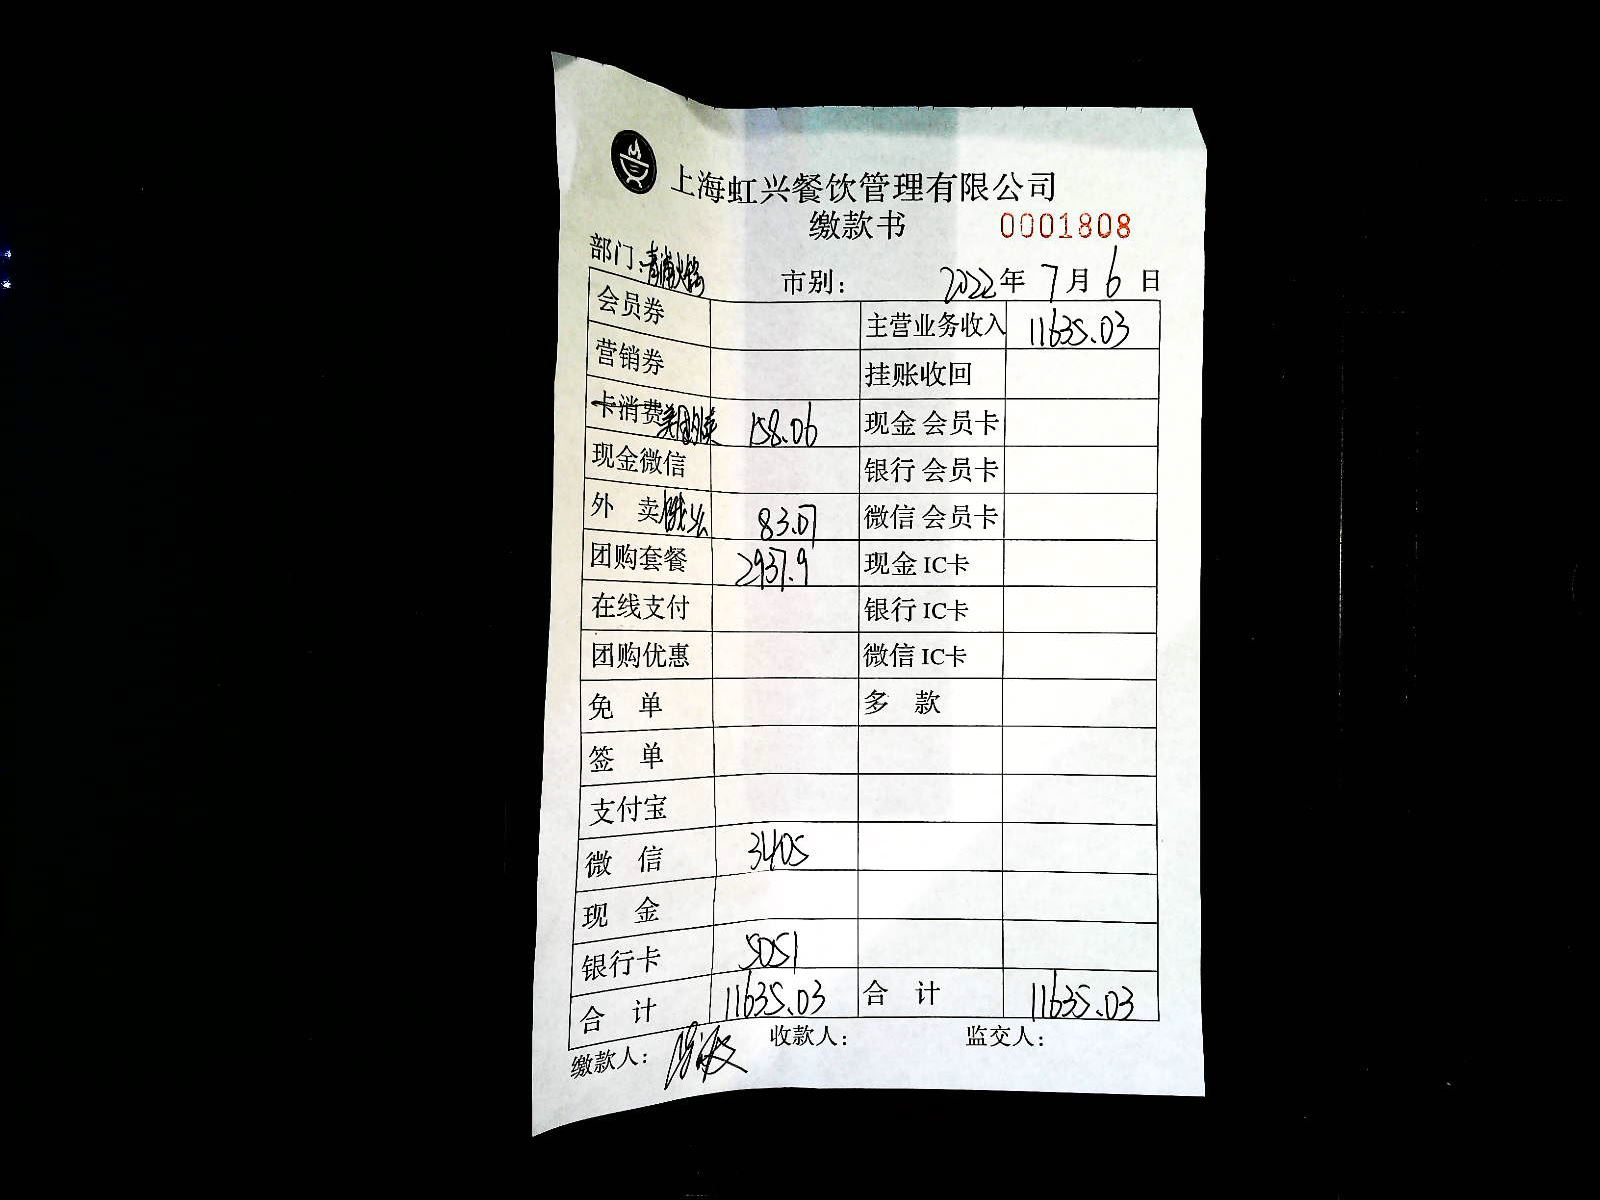 上海虹兴餐饮管理有限公司
缴款书 0001808
部门:青浦火锅 市别: 2022年7月6日
会员券 主营业务收入 11635.03
营销券 挂账收回
卡消费 美团外卖 158.06 现金会员卡
现金微信 银行会员卡
外 卖 饿么 83.07 微信会员卡
团购套餐 2937.9 现金IC卡
在线支付 银行IC卡
团购优惠 微信IC卡
免 单 多 款
签 单
支付宝
微 信 3405
现 金
银行卡 5051
合 计 11635.03 合 计 11635.03
缴款人: 收款人: 监交人: